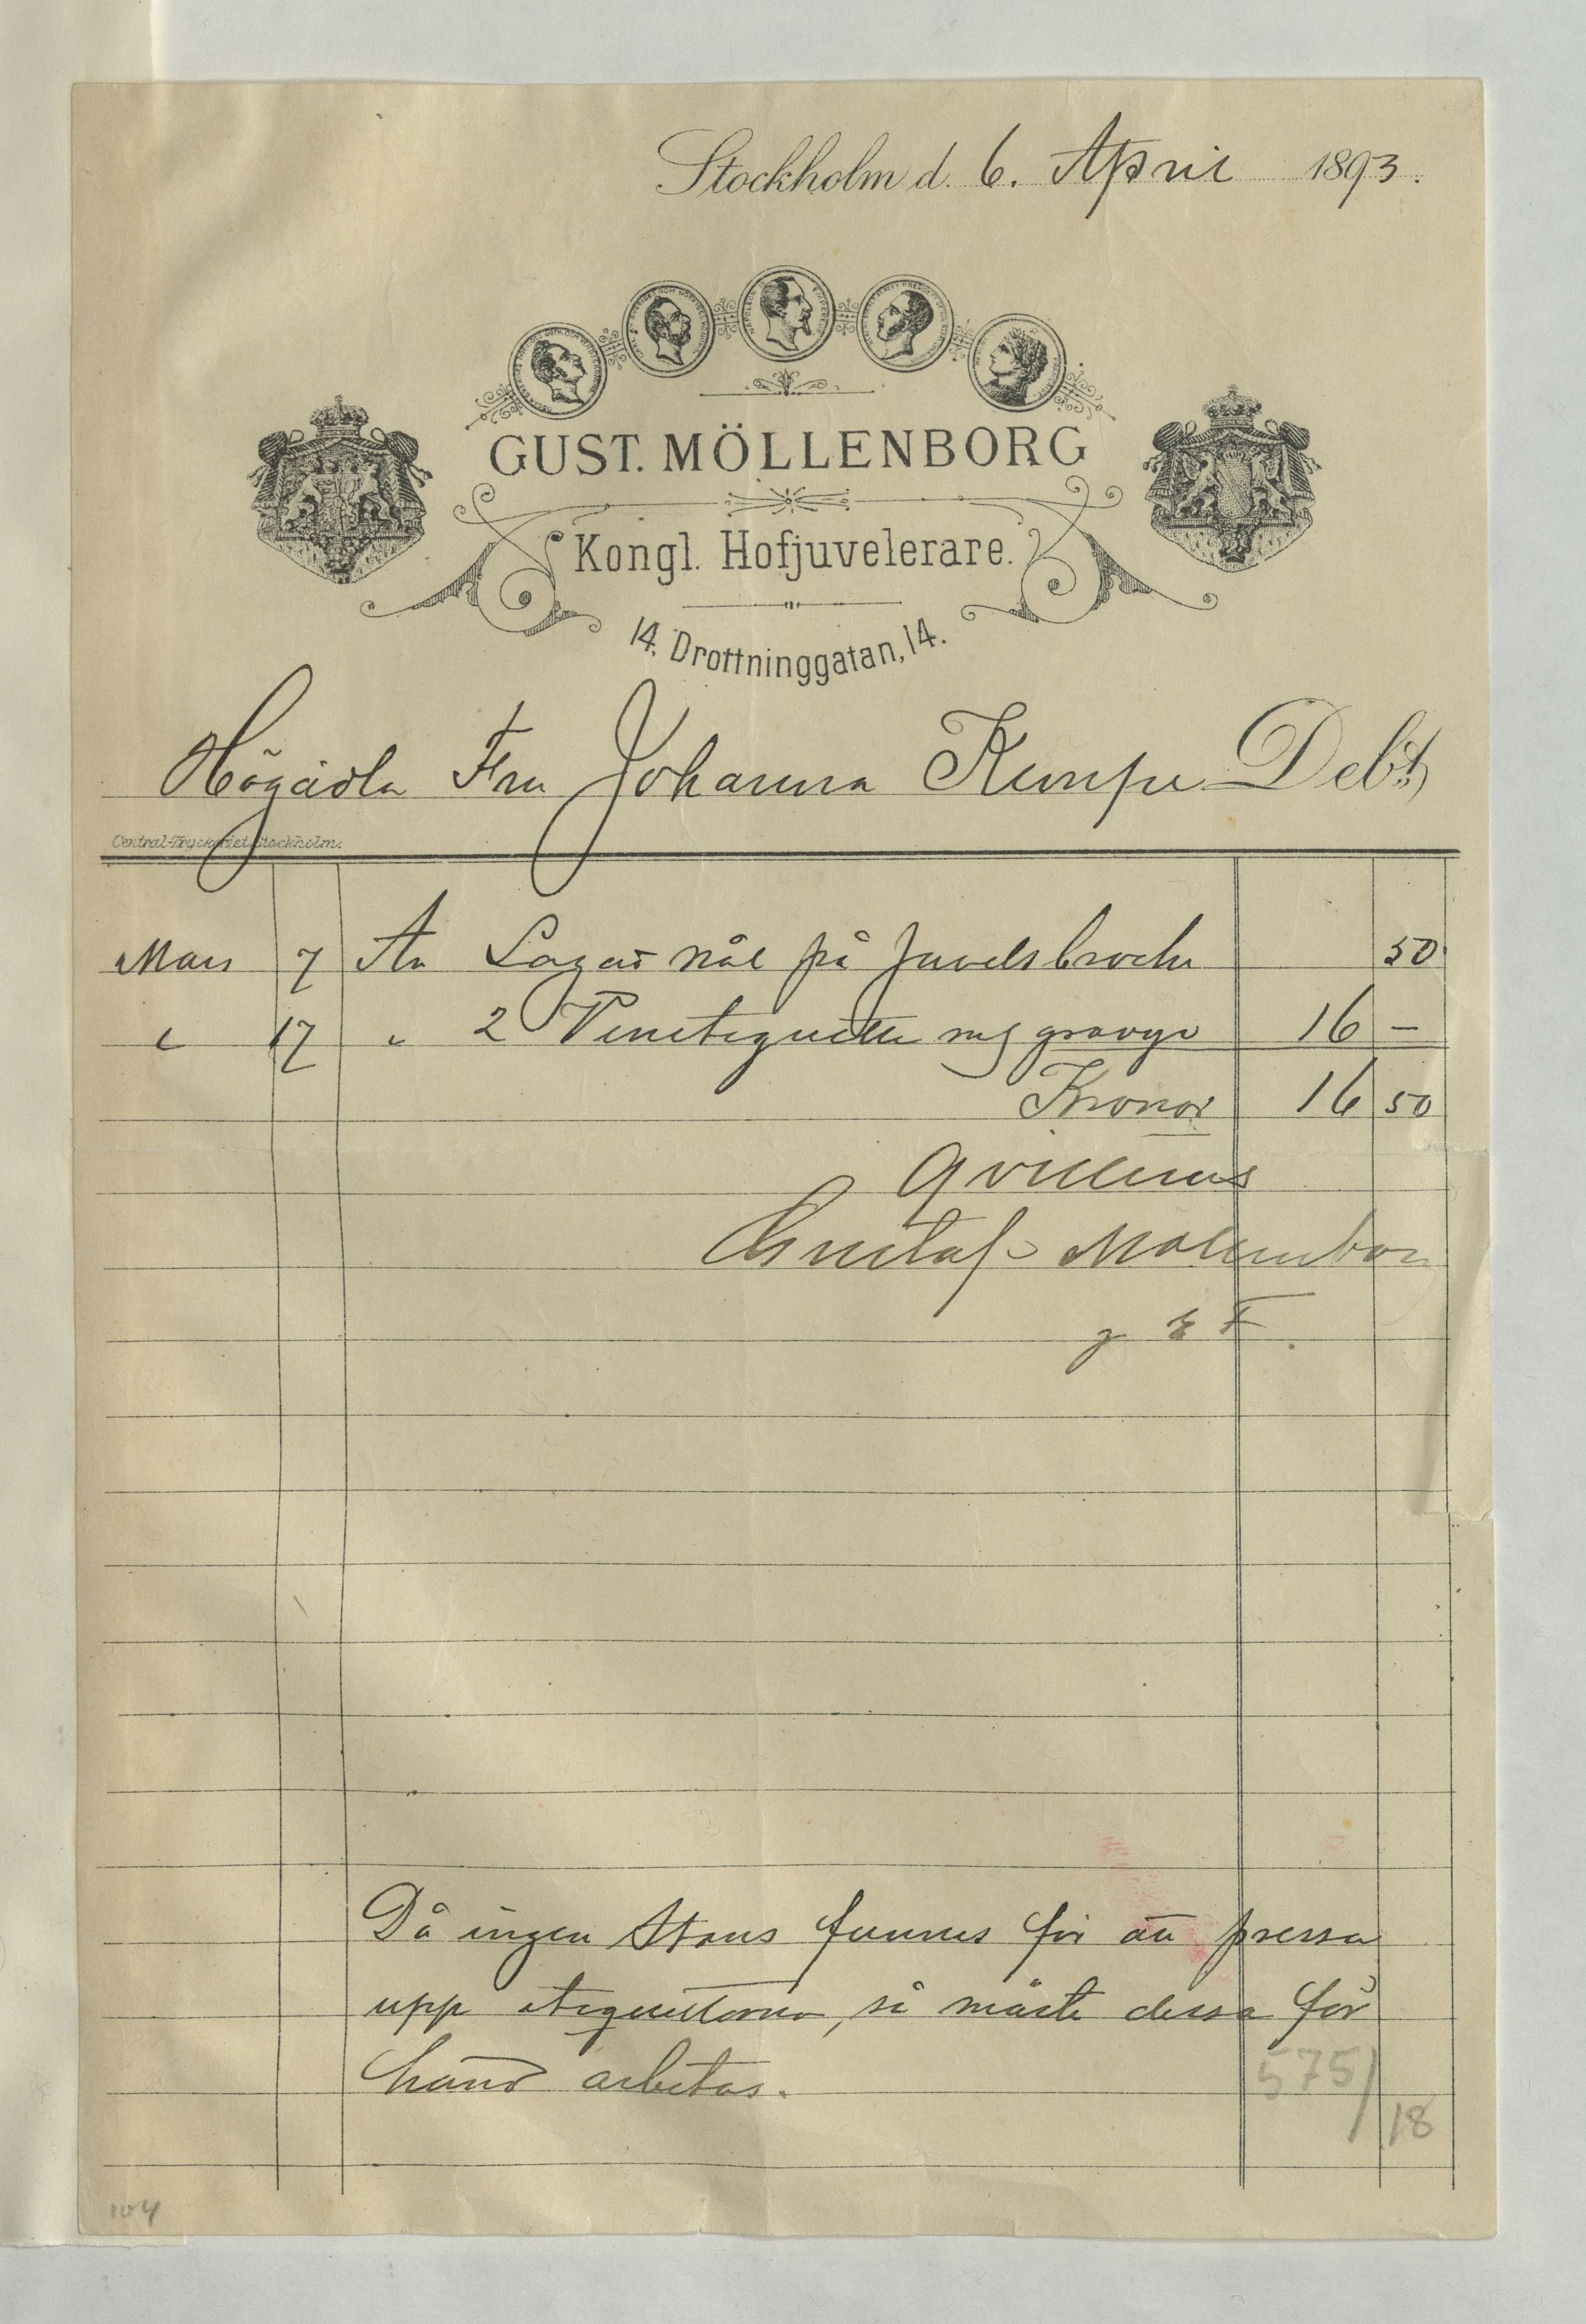 Stockholm d. 6. April 1893.
GUST. MÖLLENBORG
Kongl. Hofjuvelerare.
14. Drottninggatan, 14.
Högädla Fru Johanna Kempe Debet
Central-Tryckeriet, Stockholm.
Mars 7 An Lagat nål på Juvelsbroche 50
" 17 " 2 Vinetiquetter m gravyr 16 —
Kronor 16 50
Qvitteras
Gustaf Möllenborg
g E F
Då ingen Stans funnes för att pressa
upp etiquetterna, så måste dessa för
hand arbetas.
575/
18
104